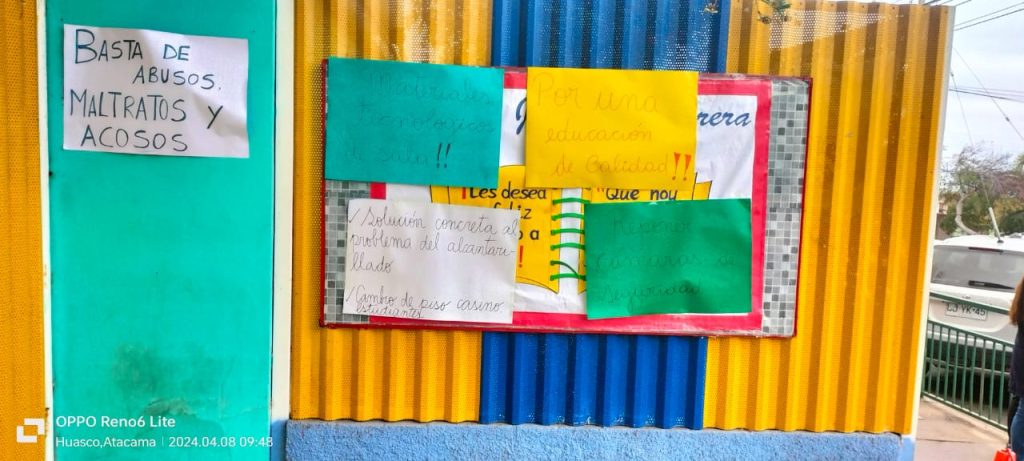 BASTA DE
ABUSOS.
MALTRATOS Y
ACOSOS
Materiales
Tecnológicos
de sala!!
Por una
educación
de Calidad!!
rera
¡Les desea
feliz
a
!
"Que hoy
/ Solución concreta al
problema del alcantari-
llado
/ Cambio de piso casino.
estudiantes
Reponer
Cámaras de
Seguridad
LJYK-45
OPPO Reno6 Lite
Huasco,Atacama | 2024.04.08 09:48